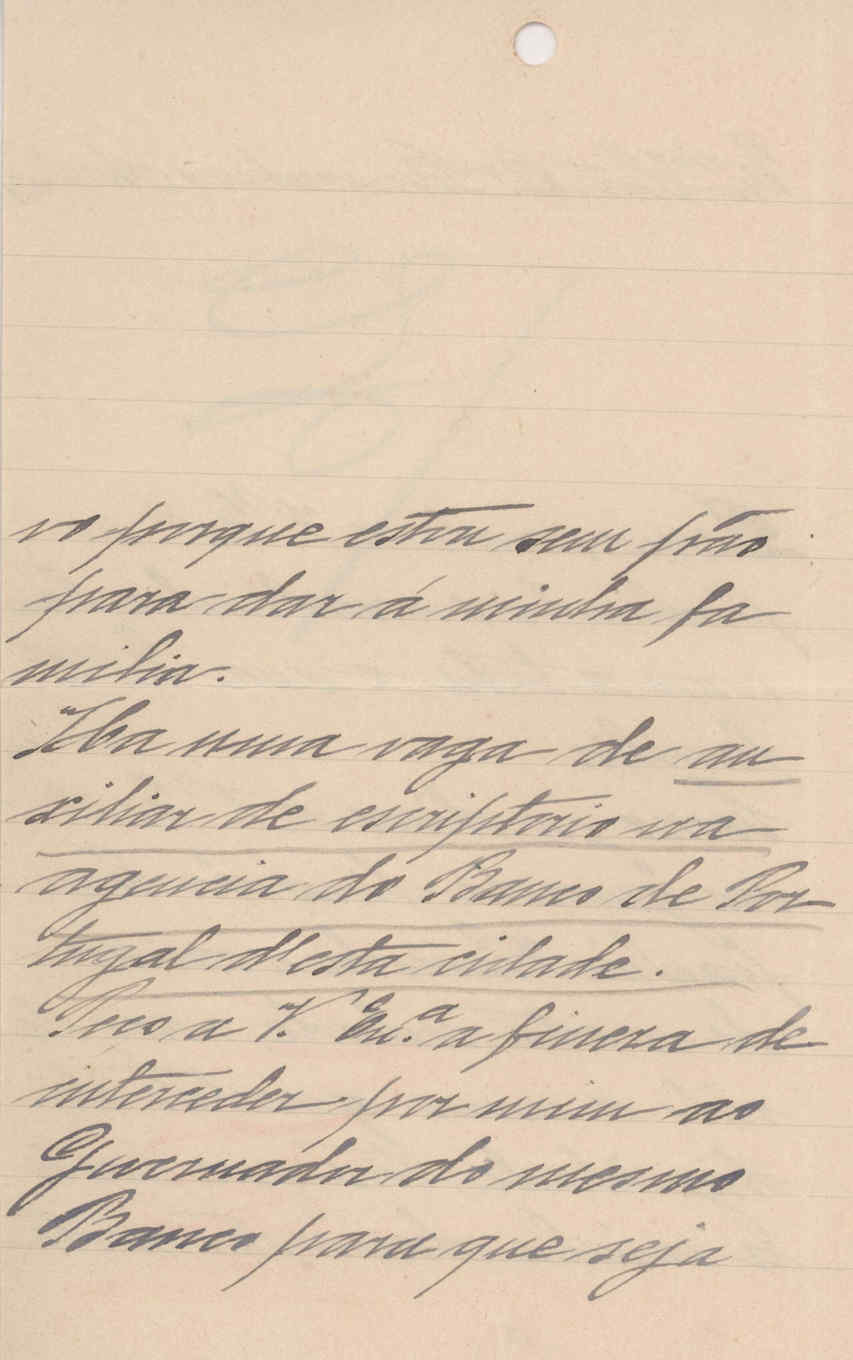 vo porque estou sem pão
para dar á minha fa
milia.
Há uma vaga de au
xiliar de escriptorio na
agencia do Banco de Por
tugal d'esta cidade.
Peço a V. Ex.ª a fineza de
interceder por mim ao
Governador do mesmo
Banco para que seja